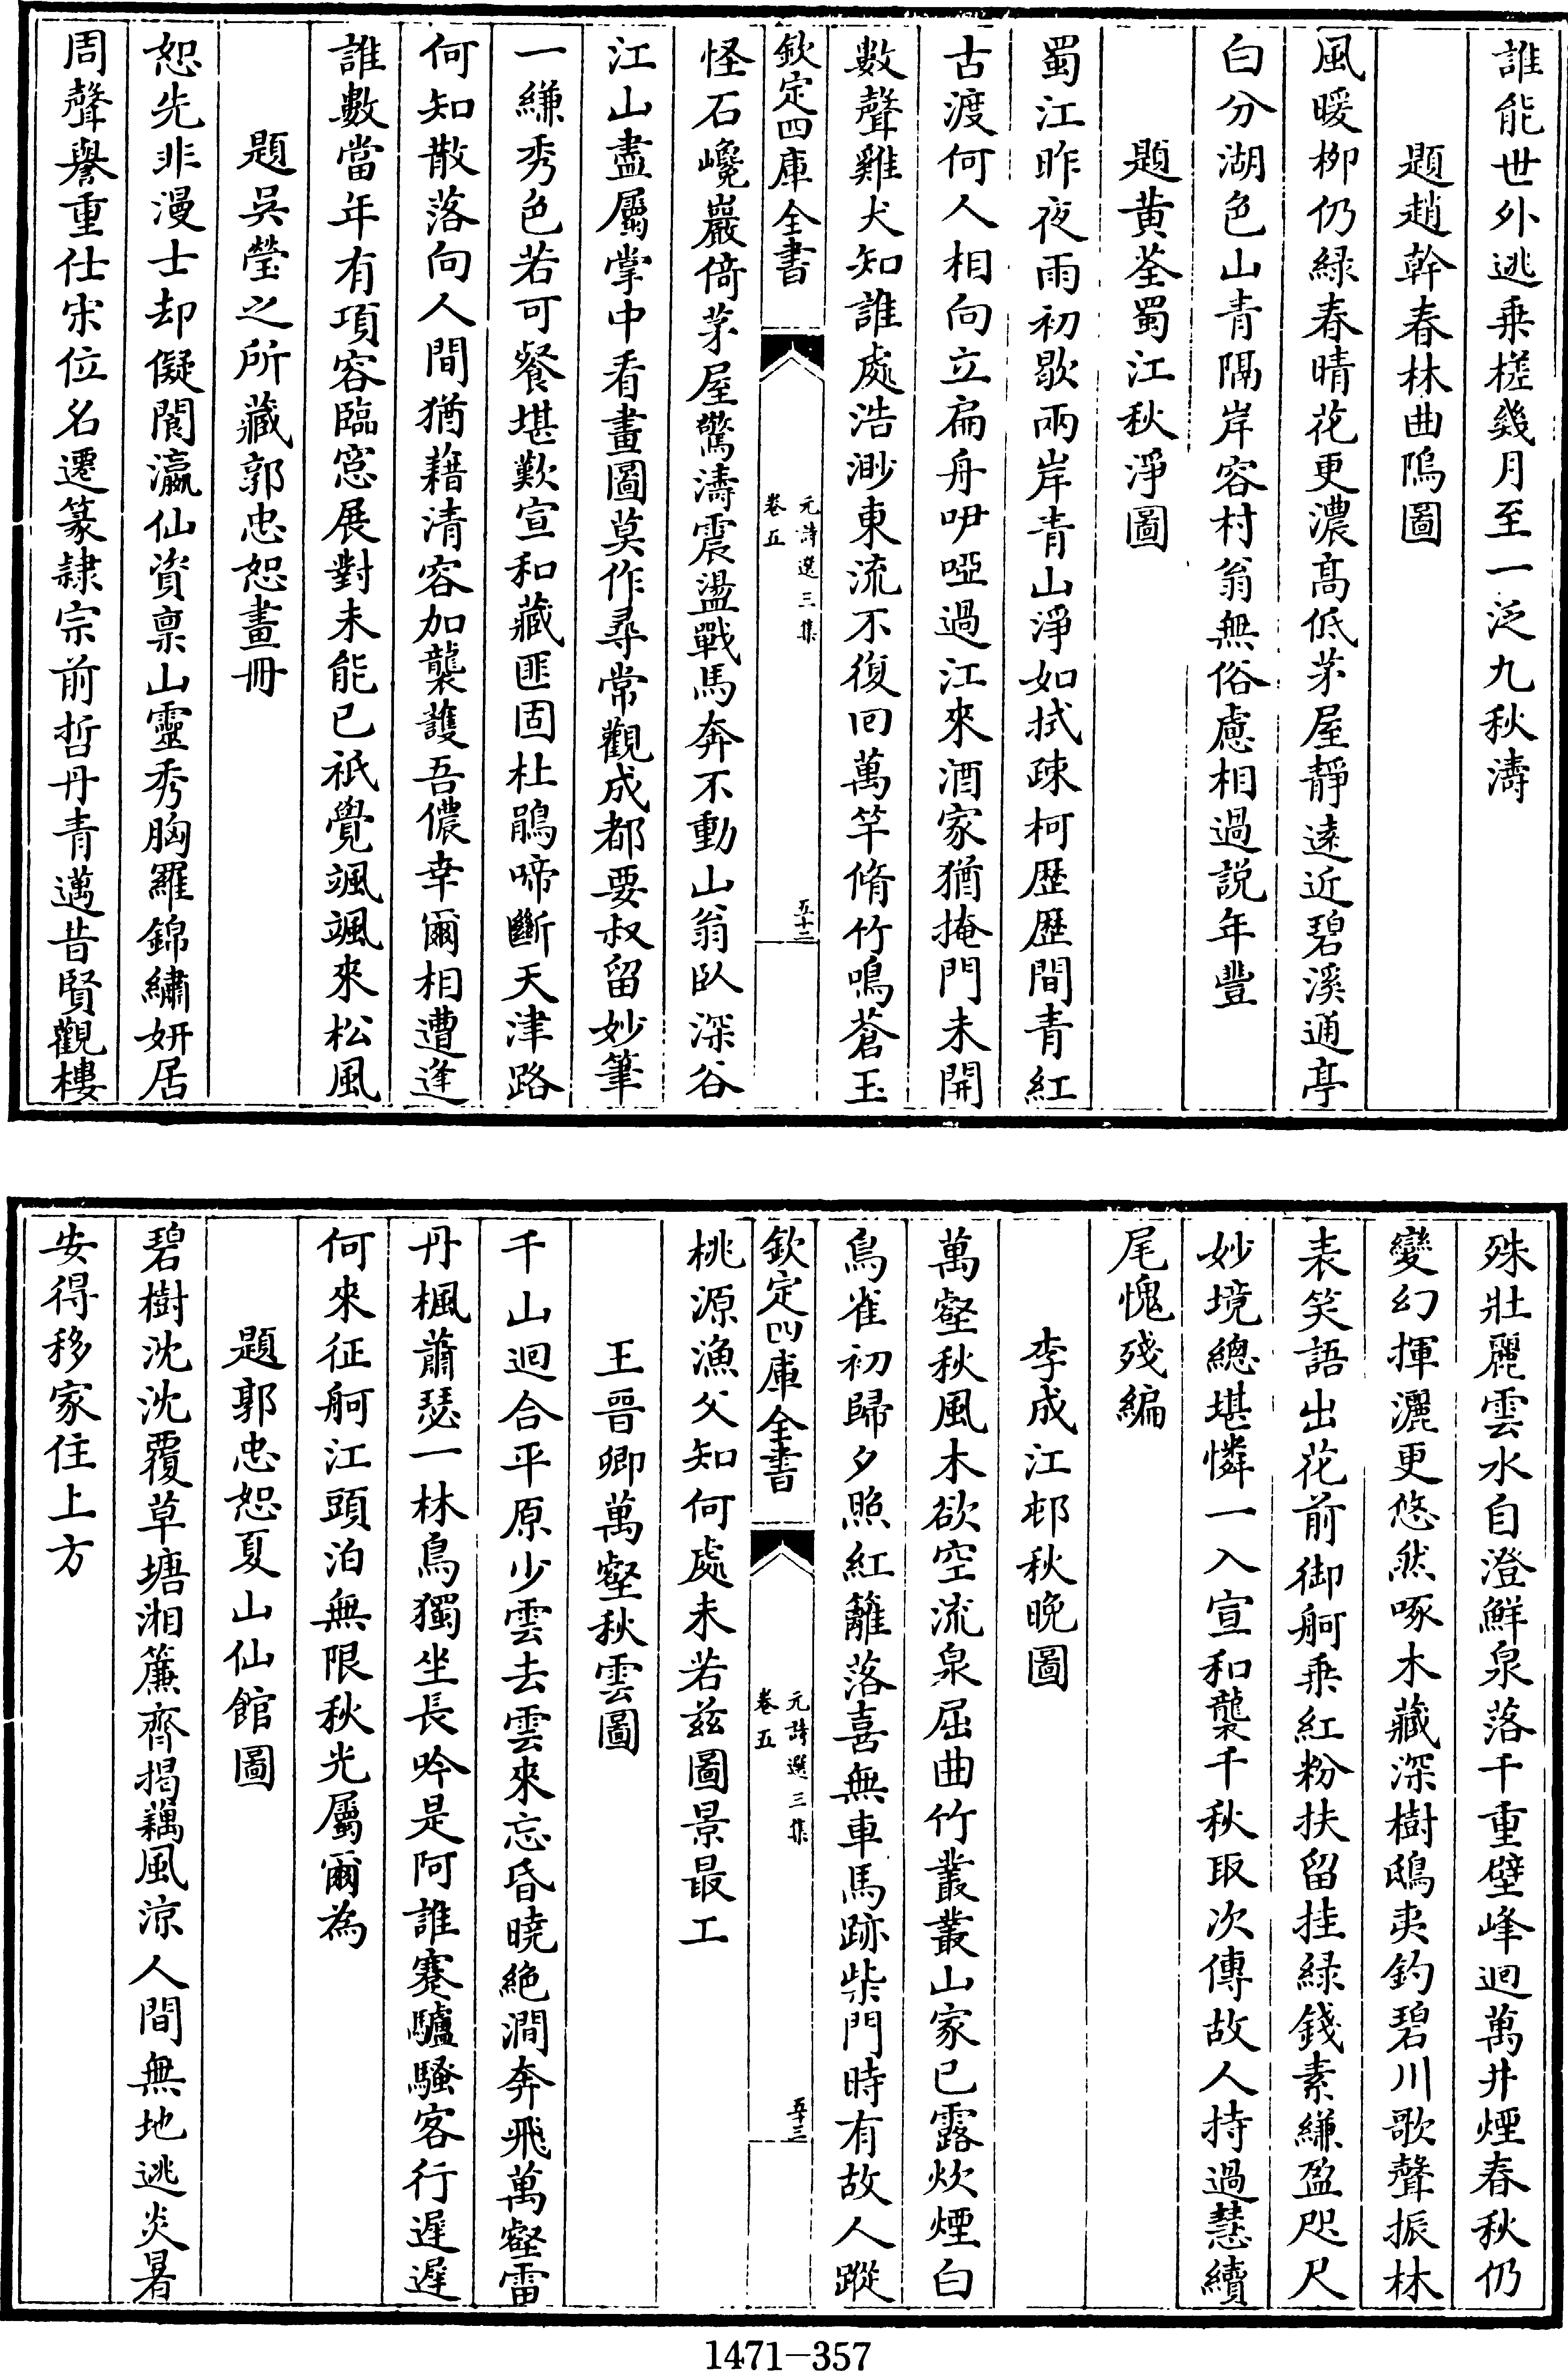 誰能世外逃乗槎幾月至一泛九秋濤
題趙幹春林曲隖圖
風暖柳仍緑春晴花更濃髙低茅屋靜逺近碧溪通亭
白分湖色山青隔岸容村翁無俗慮相過説年豐
題黄荃蜀江秋淨圖
蜀江昨夜雨初歇兩岸青山淨如拭疎柯歴歴間青紅
古渡何人相向立扁舟咿啞過江來酒家猶掩門未開
數聲雞犬知誰處浩渺東流不復回萬竿脩竹鳴蒼玉
欽定四庫全書
元詩選三集
卷五
五十二
怪石巉巖倚茅屋驚濤震盪戰馬奔不動山翁臥深谷
江山盡屬掌中看畫圖莫作尋常觀成都要叔留妙筆
一縑秀色若可餐堪歎宣和藏匪固杜鵑啼斷天津路
何知散落向人間猶藉清容加襲護吾儂幸爾相遭逢
誰數當年有項容臨窓展對未能已祇覺颯颯來松風
題吳瑩之所藏郭忠恕畫冊
恕先非漫士却儗閬瀛仙資禀山靈秀胸羅錦繡妍居
周聲譽重仕宋位名遷篆隷宗前哲丹青邁昔賢觀樓
殊壯麗雲水自澄鮮泉落千重壁峰迴萬井煙春秋仍
變幻揮灑更悠然啄木藏深樹鴟夷釣碧川歌聲振林
表笑語出花前御舸乗紅粉扶留挂緑錢素縑盈咫尺
妙境總堪憐一入宣和襲千秋取次傳故人持過慧續
尾愧殘編
李成江邨秋晚圖
萬壑秋風木欲空流泉屈曲竹叢叢山家已露炊煙白
鳥雀初歸夕照紅籬落喜無車馬跡柴門時有故人蹤
欽定四庫全書
元詩選三集
卷五
五十三
桃源漁父知何處未若兹圖景最工
王晉卿萬壑秋雲圖
千山迴合平原少雲去雲來忘昏曉絶澗奔飛萬壑雷
丹楓蕭瑟一林鳥獨坐長吟是阿誰蹇驢騷客行遲遲
何來征舸江頭泊無限秋光屬爾為
題郭忠恕夏山仙館圖
碧樹沈沈覆草塘湘簾齊揭藕風涼人間無地逃炎暑
安得移家住上方
1471-357